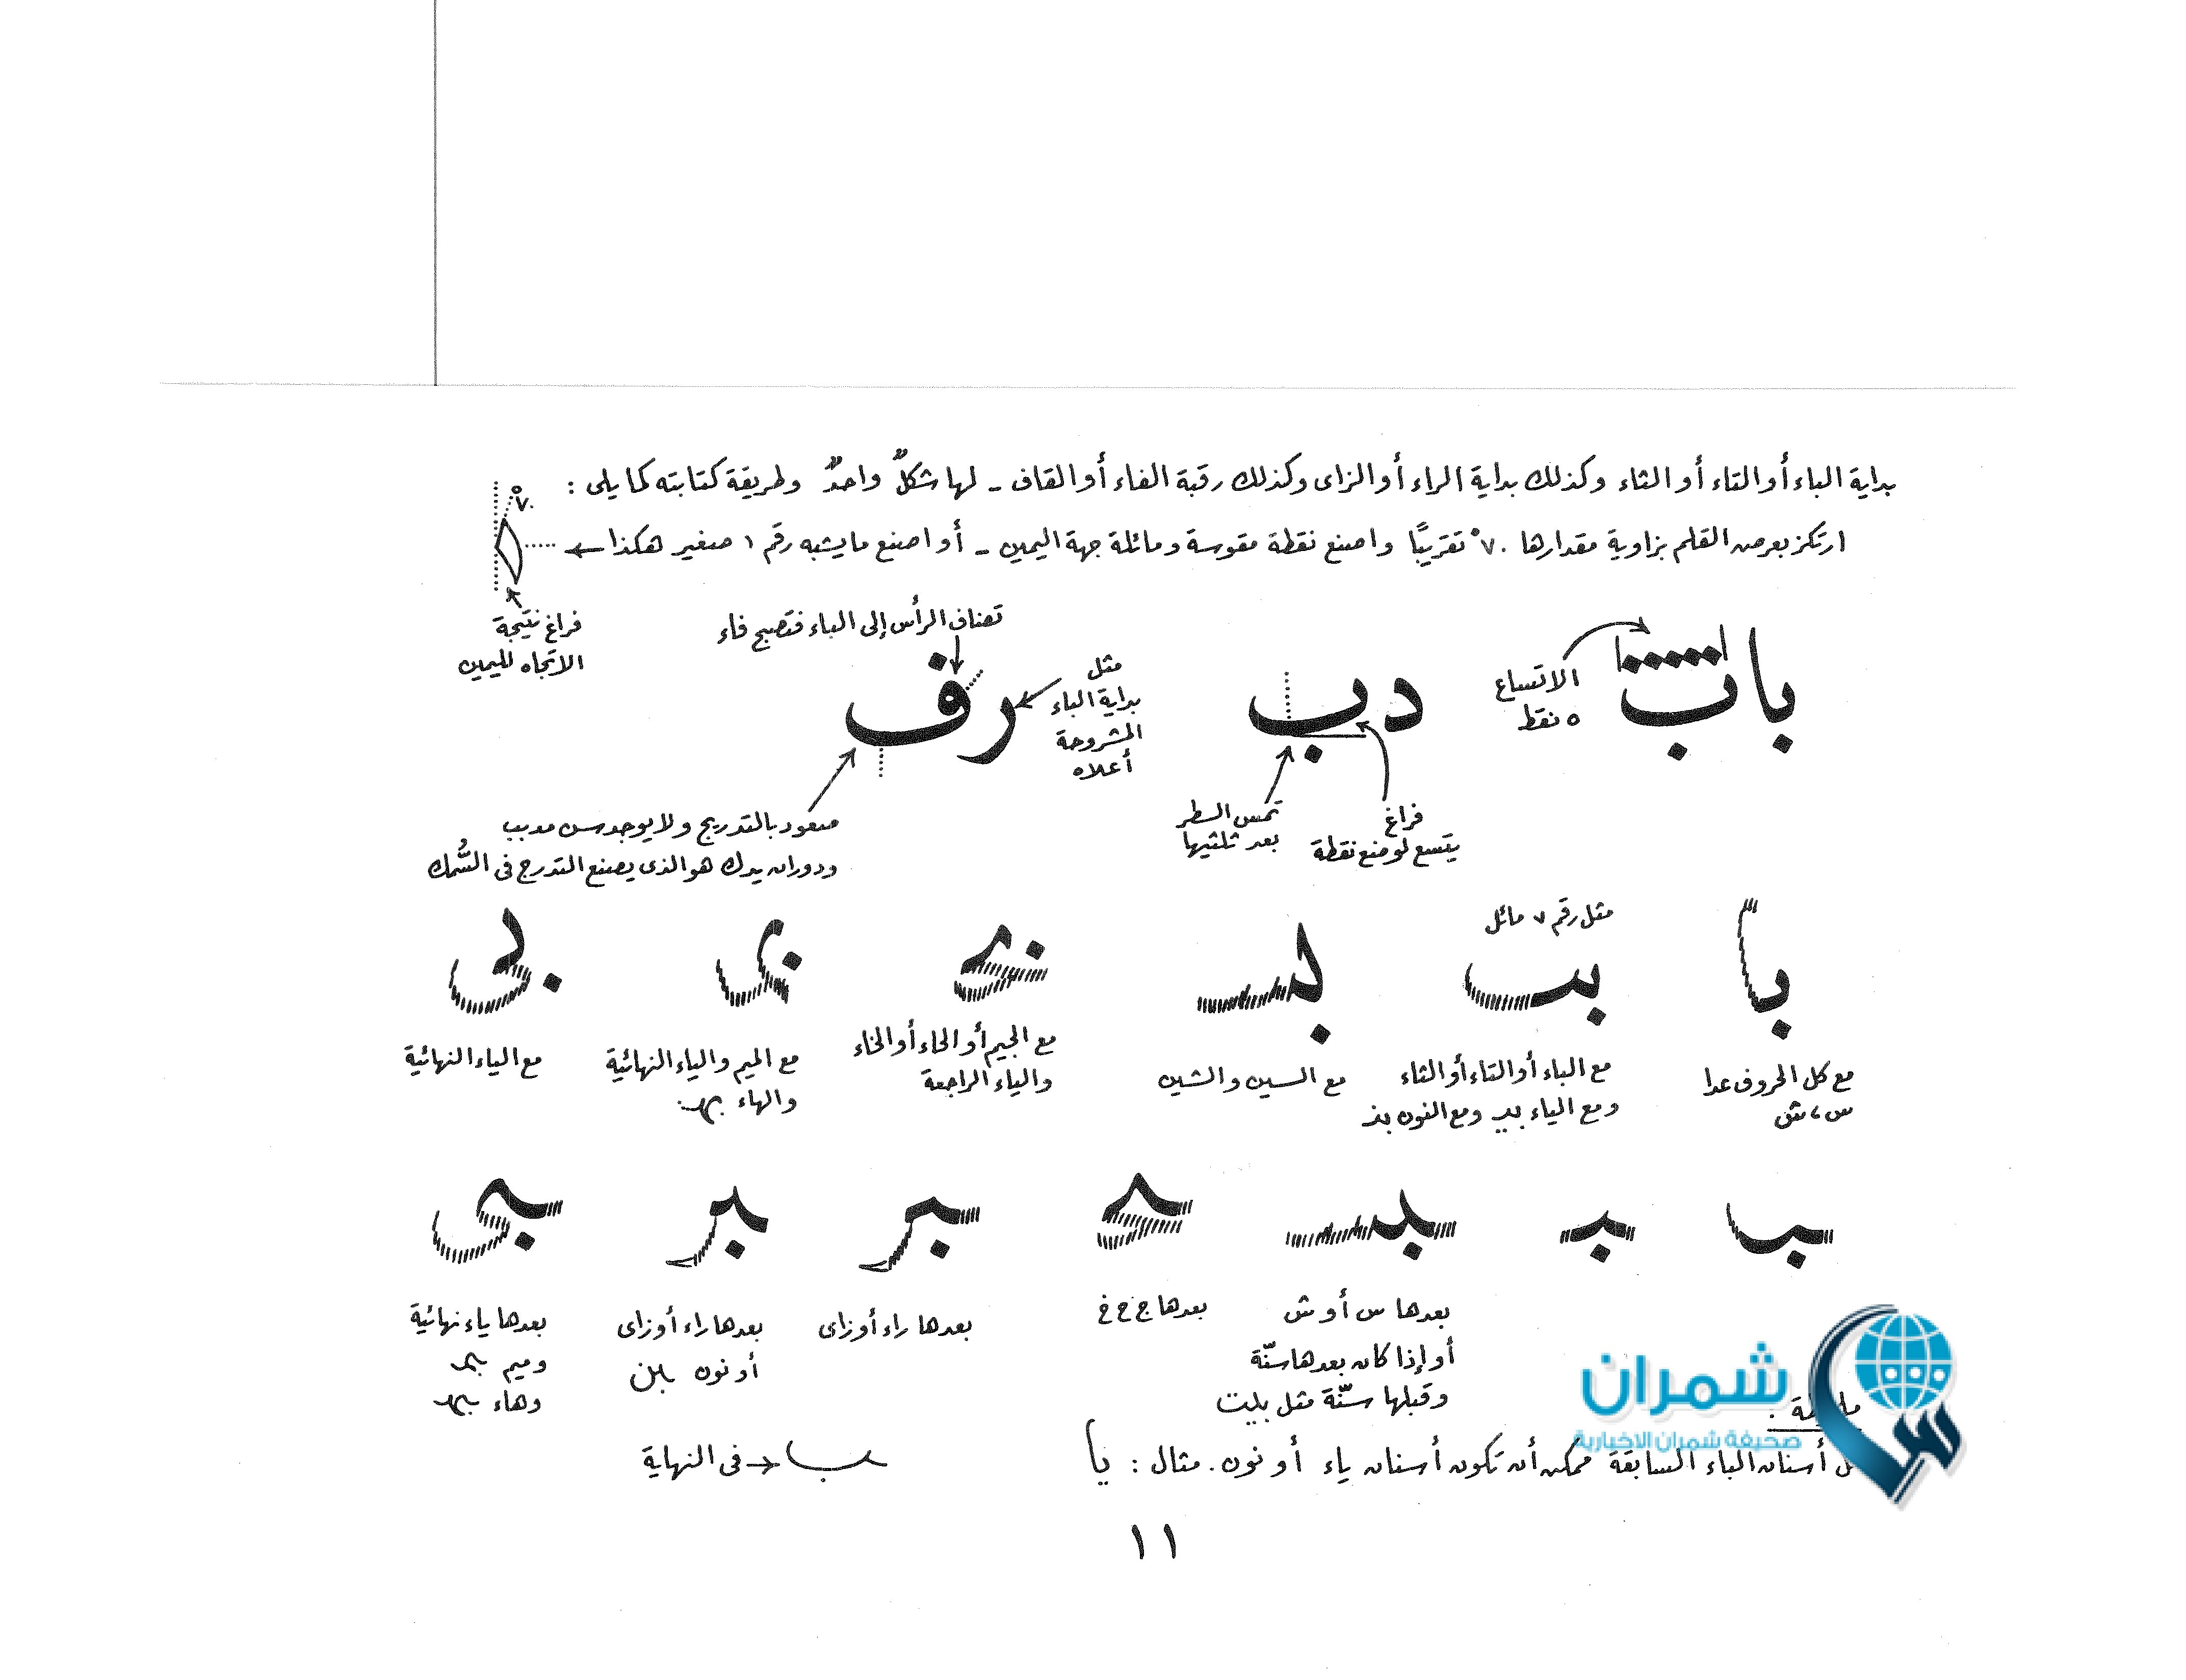 بداية الباء أو التاء أو الثاء وكذلك بداية الراء أو الزاى وكذلك رقبة الفاء أو القاف - لها شكلٌ واحدٌ وطريقة كتابته كما يلى :
ارتكز بعرض القلم بزاوية مقدارها ٧٠° تقريبًا واصنع نقطة مقوسة ومائلة جهة اليمين - أو اصنع ما يشبه رقم ١ صغير هكذا
٧٠°
فراغ نتيجة
الاتجاه لليمين
باب
الاتساع
٥ نقط
دب
فراغ
يتسع لوضع نقطة
تمس السطر
بعد ثلثيها
رف
تضاف الرأس إلى الباء فتصبح فاء
مثل
بداية الباء
المشروحة
أعلاه
صعود بالتدريج ولا يوجد سن مدبب
ودوران يدك هو الذى يصنع التدرج فى السُّمك
با
مع كل الحروف عدا
س ، ش
مثل رقم ٧ مائل
بب
مع الباء أو التاء أو الثاء
ومع الياء بيـ ومع النون بنـ
بسـ
مع السين والشين
مع الجيم أو الحاء أو الخاء
والياء الراجعة
مع الميم والياء النهائية
والهاء بهـ
بى
مع الياء النهائية
بعدها س أو ش
أو إذا كان بعدها سنّة
وقبلها سنّة مثل بليت
بعدها ج ح خ
بعدها راء أو زاى
بعدها راء أو زاى
أو نون
بعدها ياء نهائية
وميم بمـ
وهاء بهـ
شمران
صحيفة شمران الاخبارية
أسنان الباء السابقة ممكن أن تكون أسنان ياء أو نون . مثال : يا
فى النهاية
١١